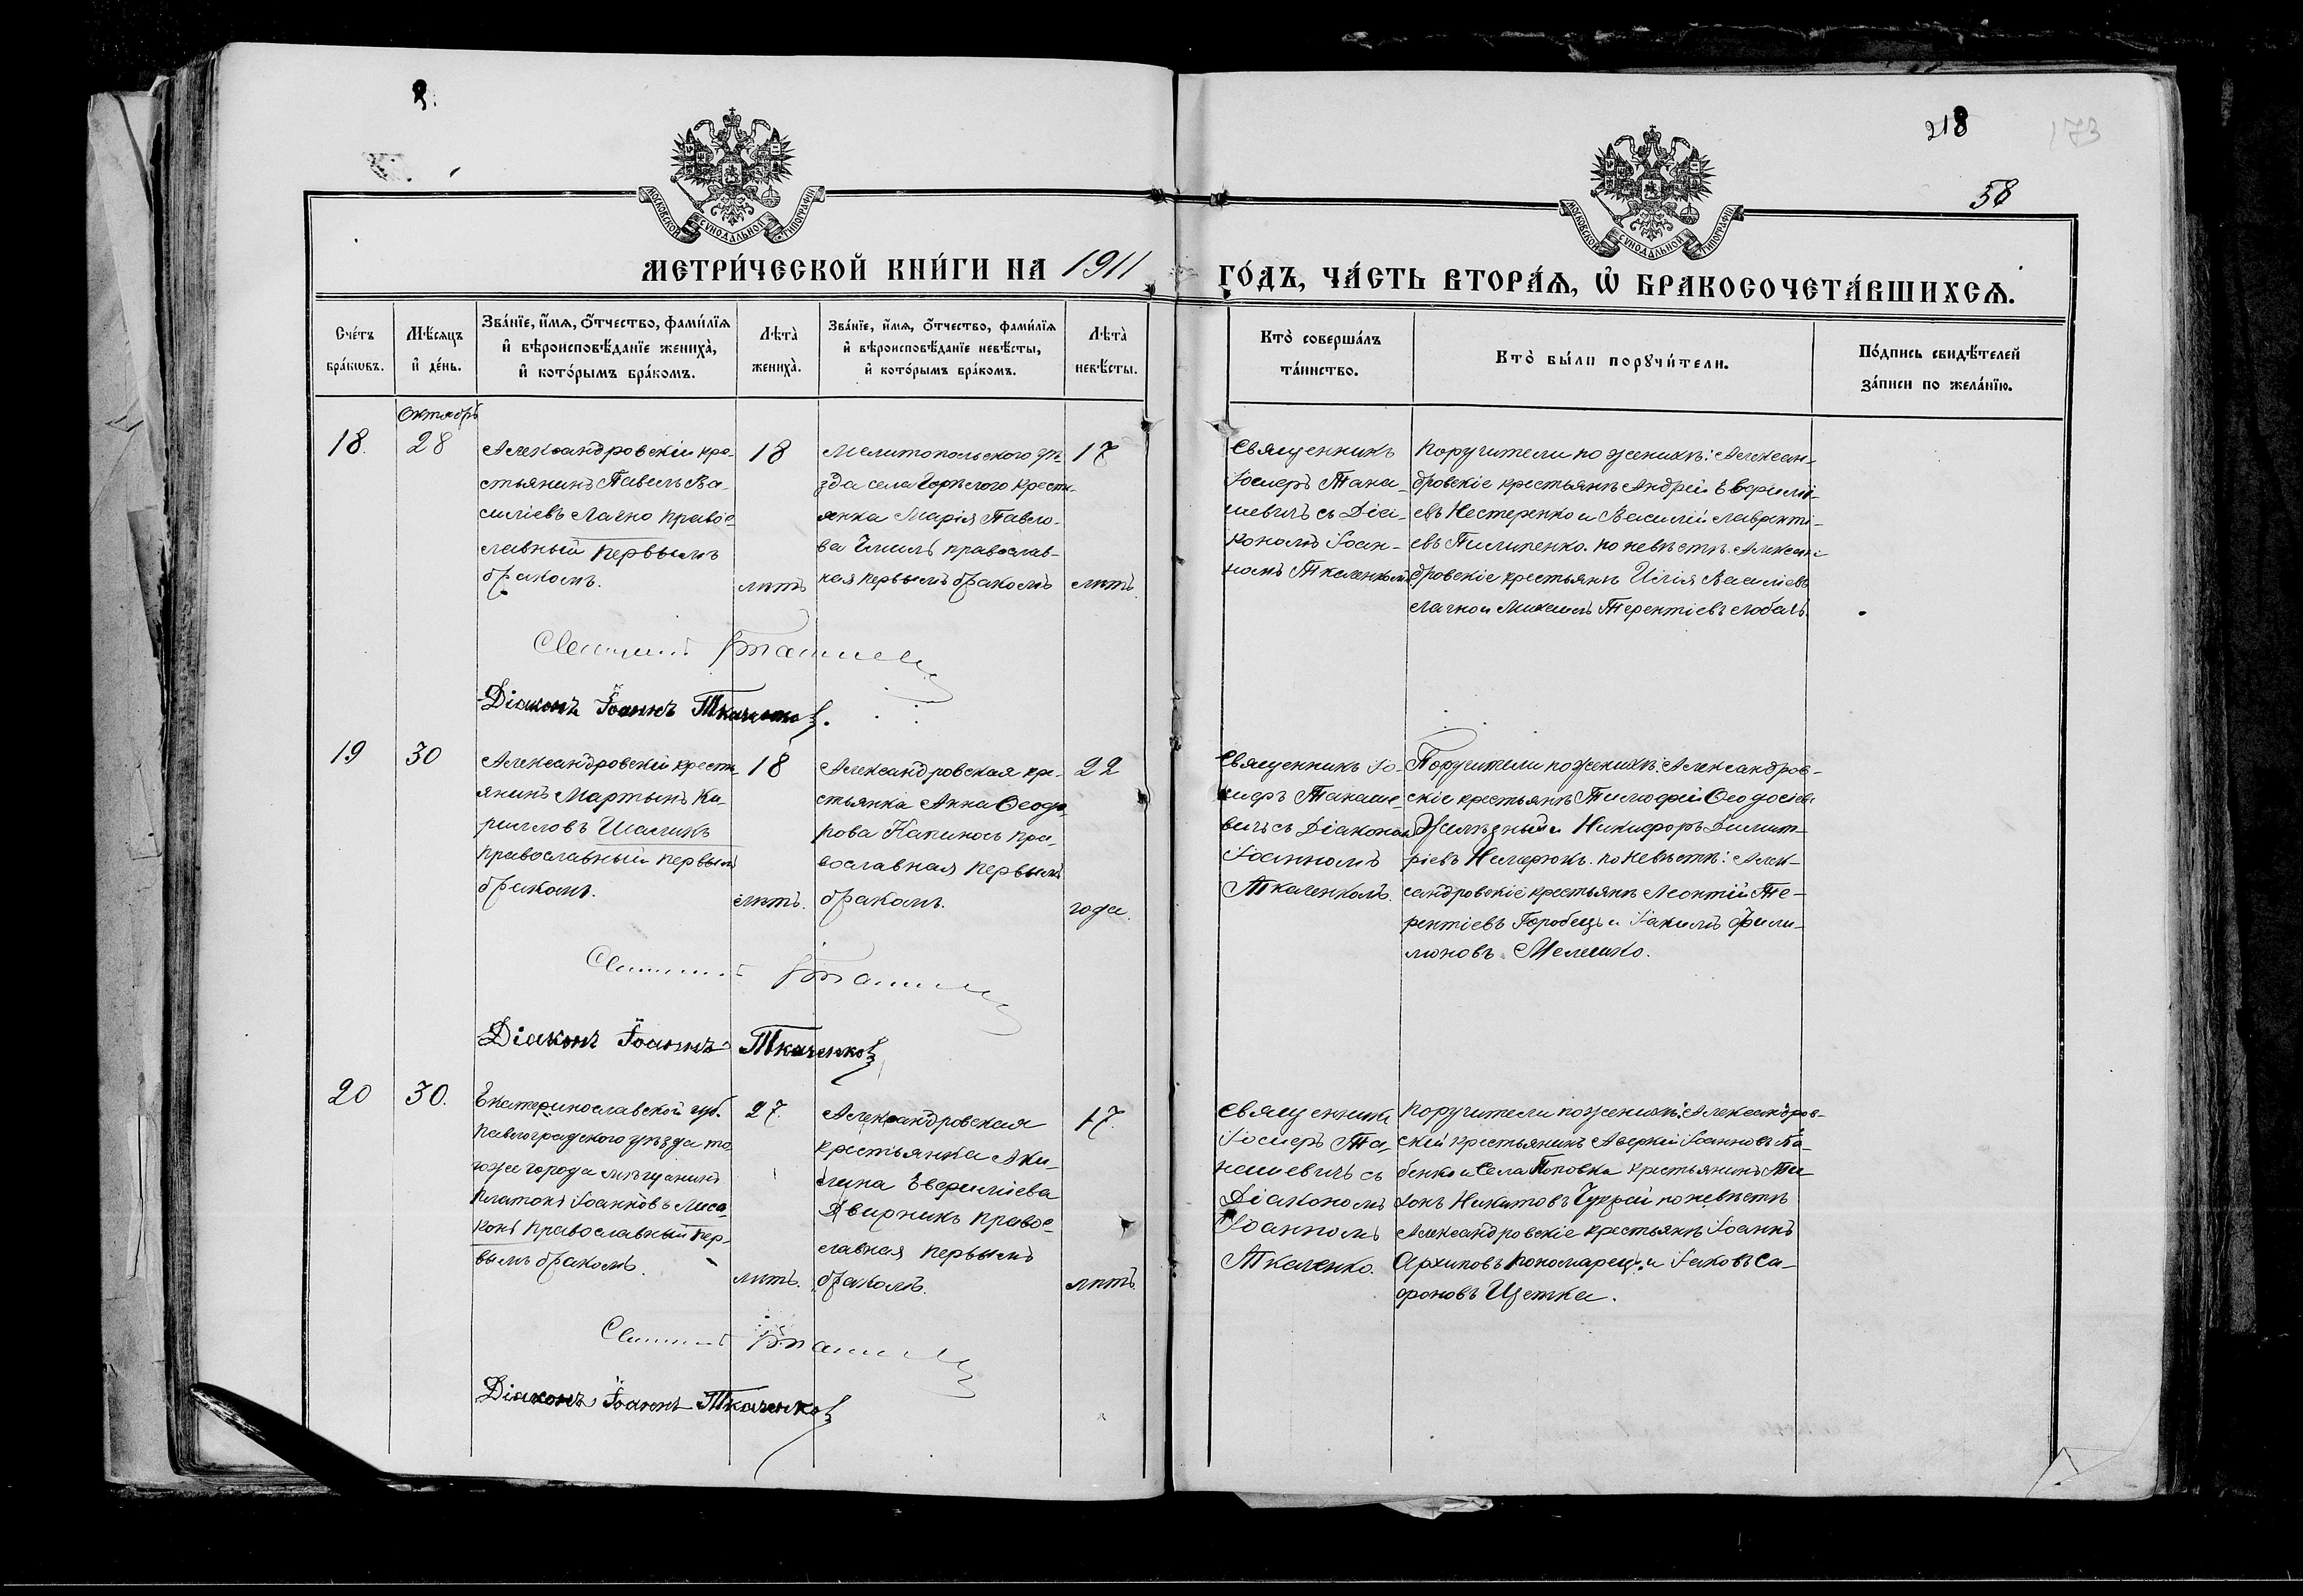 218
173
58
МОСКОВСКОЙ СѴНОДАЛЬНОЙ ТИПОГРАФІИ
МОСКОВСКОЙ СѴНОДАЛЬНОЙ ТИПОГРАФІИ
МЕТРИ́ЧЕСКОЙ КНИ́ГИ НА 1911
ГО́ДЪ, ЧА́СТЬ ВТОРА́Ѧ, Ѽ БРАКОСОЧЕТА́ВШИХСѦ.
Сче́тъ
бра́кѡвъ.
Мѣ́сѧцъ
и҆ де́нь.
Зва́нїе, и҆́мѧ, ѻ҆́тчество, фами́лїѧ
и҆ вѣроисповѣ́данїе жениха̀,
и҆ кото́рымъ бра́комъ.
Лѣта̀
жениха̀.
Зва́нїе, и҆́мѧ, ѻ҆́тчество, фами́лїѧ
и҆ вѣроисповѣ́данїе невѣ́сты,
и҆ кото́рымъ бра́комъ.
Лѣта̀
невѣ́сты.
Кто̀ соверша́лъ
та́инство.
Кто̀ бы́ли порꙋчи́тели.
По́дпись свидѣ́телей
за́писи по жела́нїю.
Октябрь
18.
28
Александровскій кре-
стьянинъ Павелъ Ва-
силіевъ Лагно право-
славный первымъ
бракомъ.
18
лѣтъ
Мелитопольского уѣ-
зда села Горѣлого крестья-
янка Марія Павло-
ва православ-
ная первымъ бракомъ
17
лѣтъ.
Священникъ
Іосифъ Тана-
шевичъ съ Діа-
кономъ Іоан-
номъ Ткаченкомъ
Поручители по женихѣ: Алексан-
дровскіе крестьянѣ Андрей Евфимі-
евъ Нестеренко и Василій Лавренті-
евъ Пилипенко. по невѣстѣ: Алексан-
дровскіе крестьянѣ Илія Василіевъ
Лагно и Михаилъ Терентіевъ Лобачъ.
Діаконъ Іоаннъ Ткаченко.
19
30
Александровскій крестья-
янинъ Мартынъ Ки-
рилловъ Шаликъ
православный первымъ
бракомъ.
18
лѣтъ.
Александровская кре-
стьянка Анна Ѳеодо-
рова Капиносъ пра-
вославная первымъ
бракомъ.
22
года.
Священникъ Іо-
сифъ Танаше-
вичъ съ Діакономъ
Іоанномъ
Ткаченкомъ.
Поручители по женихѣ: Александров-
скіе крестьянѣ Тимофей Ѳеодосіевъ
Желѣзный и Никифоръ Димит-
ріевъ Нечерюкъ. по невѣстѣ: Алек-
сандровскіе крестьянѣ Леонтій Те-
рентіевъ Горобецъ и Іакимъ Фили-
моновъ Мелешко.
Діаконъ Іоаннъ Ткаченко
20
30.
Екатеринославской губ.
Павлоградского уѣзда то-
гоже города мѣщанинъ
Платонъ Іоанновъ Лиса-
конь православный пер-
вымъ бракомъ.
27.
лѣтъ.
Александровская
крестьянка Аки-
лина Евфиміева
Двирникъ право-
славная первымъ
бракомъ.
17.
лѣтъ.
Священникъ
Іосифъ Та-
нашевичъ съ
Діакономъ
Іоанномъ
Ткаченко.
Поручители по женихѣ: Александров-
скій крестьянинъ Аверкій Іоанновъ Ба-
бенко и села Поповка крестьянинъ Ти-
хонъ Никитовъ по невѣстѣ
Александровскіе крестьянѣ Іоаннъ
Архиповъ Пономарецъ и Іаковъ Са-
фроновъ Щетка.
Діаконъ Іоаннъ Ткаченко